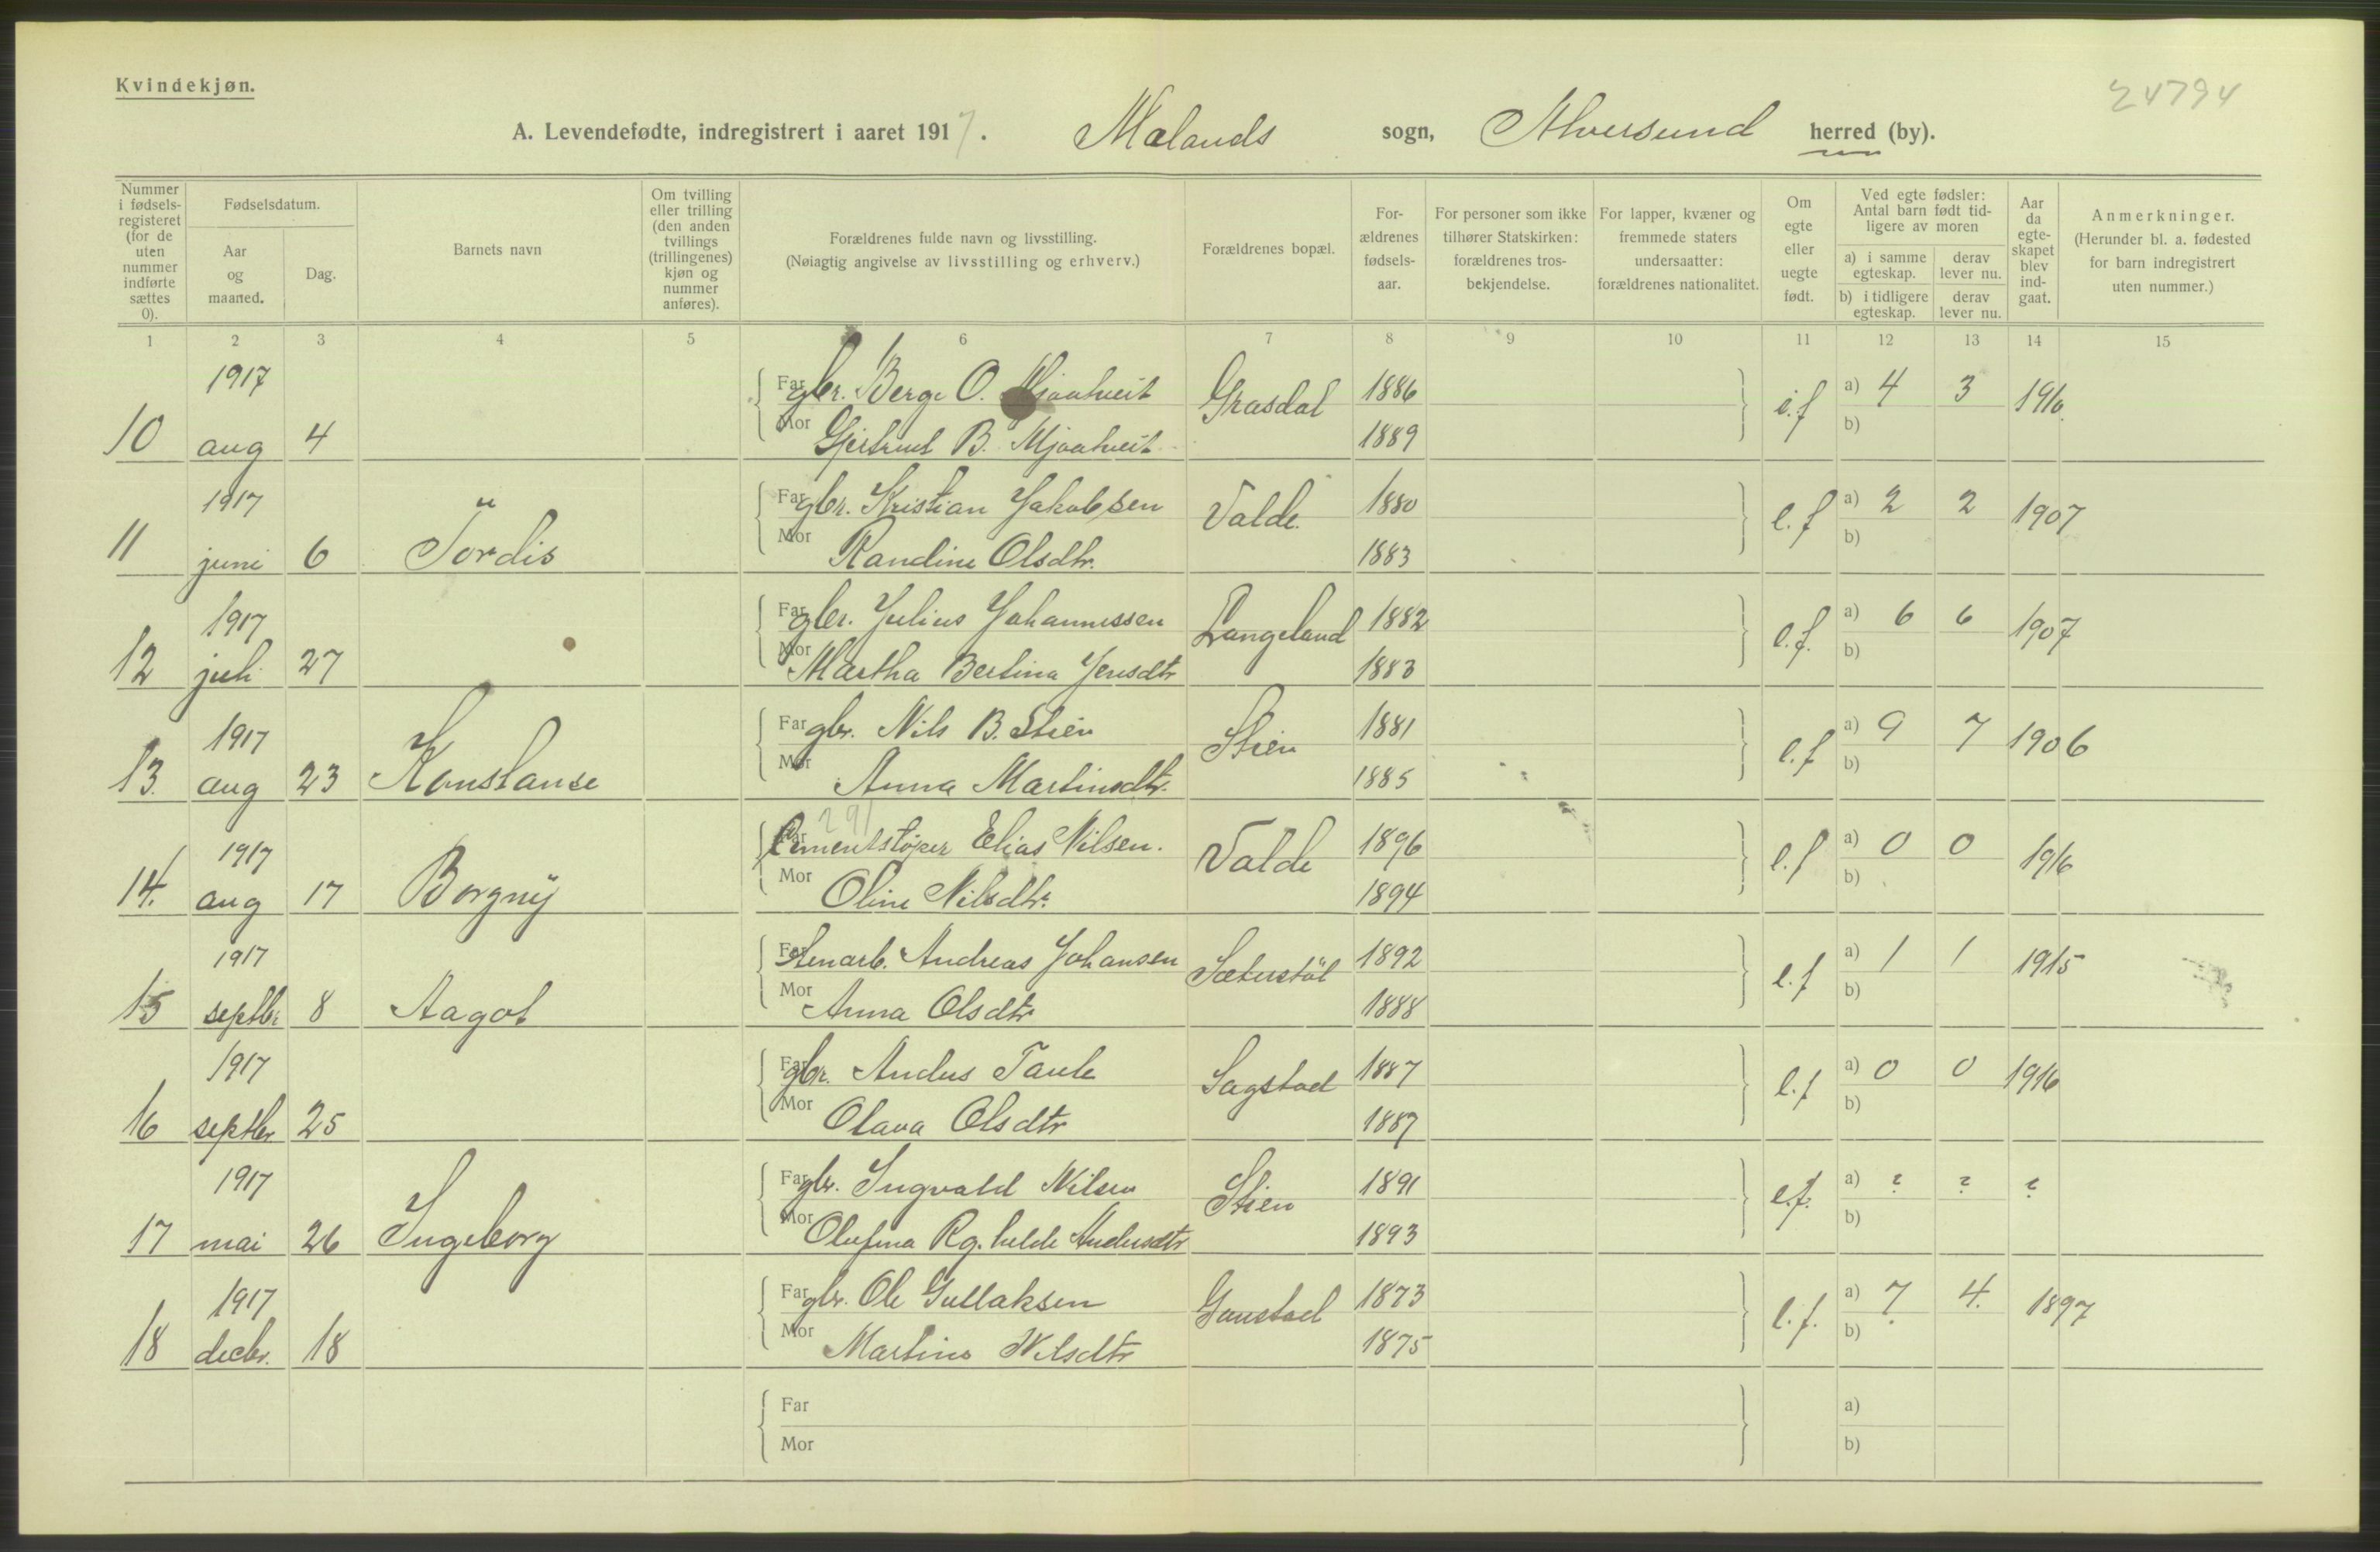 Kvindekjøn.
24794
A. Levendefødte, indregistrert i aaret 1917. Mælands sogn, Alversund herred (by).
Nummer i fødselsregisteret (for de uten nummer indførte sættes 0).
Fødselsdatum.
Aar og maaned.
Dag.
Barnets navn
Om tvilling eller trilling (den anden tvillings (trillingenes) kjøn og nummer anføres).
Forældrenes fulde navn og livsstilling.
(Nøiagtig angivelse av livsstilling og erhverv.)
Forældrenes bopæl.
Forældrenes fødselsaar.
For personer som ikke tilhører Statskirken: forældrenes trosbekjendelse.
For lapper, kvæner og fremmede staters undersaatter: forældrenes nationalitet.
Om egte eller uegte født.
Ved egte fødsler: Antal barn født tidligere av moren
a) i samme egteskap. derav lever nu.
b) i tidligere egteskap. derav lever nu.
Aar da egteskapet blev indgaat.
Anmerkninger.
(Herunder bl. a. fødested for barn indregistrert uten nummer.)
1 2 3 4 5 6 7 8 9 10 11 12 13 14 15
1917 Far gbr. Berge O. Mjaatveit Grasdal 1886 a) 4 3 1910
10 aug 4 Mor Gjertrud B. Mjaatveit 1889 b)
1917 Far gbr. Kristian Jakobsen Valde 1880 e.f a) 2 2 1907
11 juni 6 Tordis Mor Randine Olsdtr. 1883 b)
1917 Far gbr. Julius Johannessen Langeland 1882 e.f. a) 6 6 1907
12 juli 27 Mor Martha Bertina Jensdtr 1883 b)
1917 Far gbr. Nils B. Stien Stien 1881 e.f a) 9 7 1906
13. aug 23 Konstanse Mor Anna Martinsdtr. 1885 b)
291
1917 Far Cementstøper Elias Nilsen. Valde 1896 e.f a) 0 0 1916
14. aug 17 Borgny Mor Oline Nilsdtr. 1894 b)
1917 Far Stenarb. Andreas Johansen Sæterstøl 1892 e.f a) 1 1 1915
15 septbr 8 Aagot Mor Anna Olsdtr 1888 b)
1917 Far gbr. Anders Taule Sagstad 1887 e.f a) 0 0 1916
16 septbr 25 Mor Olava Olsdtr 1887 b)
1917 Far gbr. Ingvald Nilsen Stien 1891 e.f. a) ? ? ?
17 mai 26 Ingeborg Mor Olufina Andersdtr 1893 b)
1917 Far gbr. Ole Gullaksen Gaustad 1873 e.f. a) 7 4. 1897
18 decbr. 18 Mor Martine Nilsdtr 1875 b)
Far a)
Mor b)